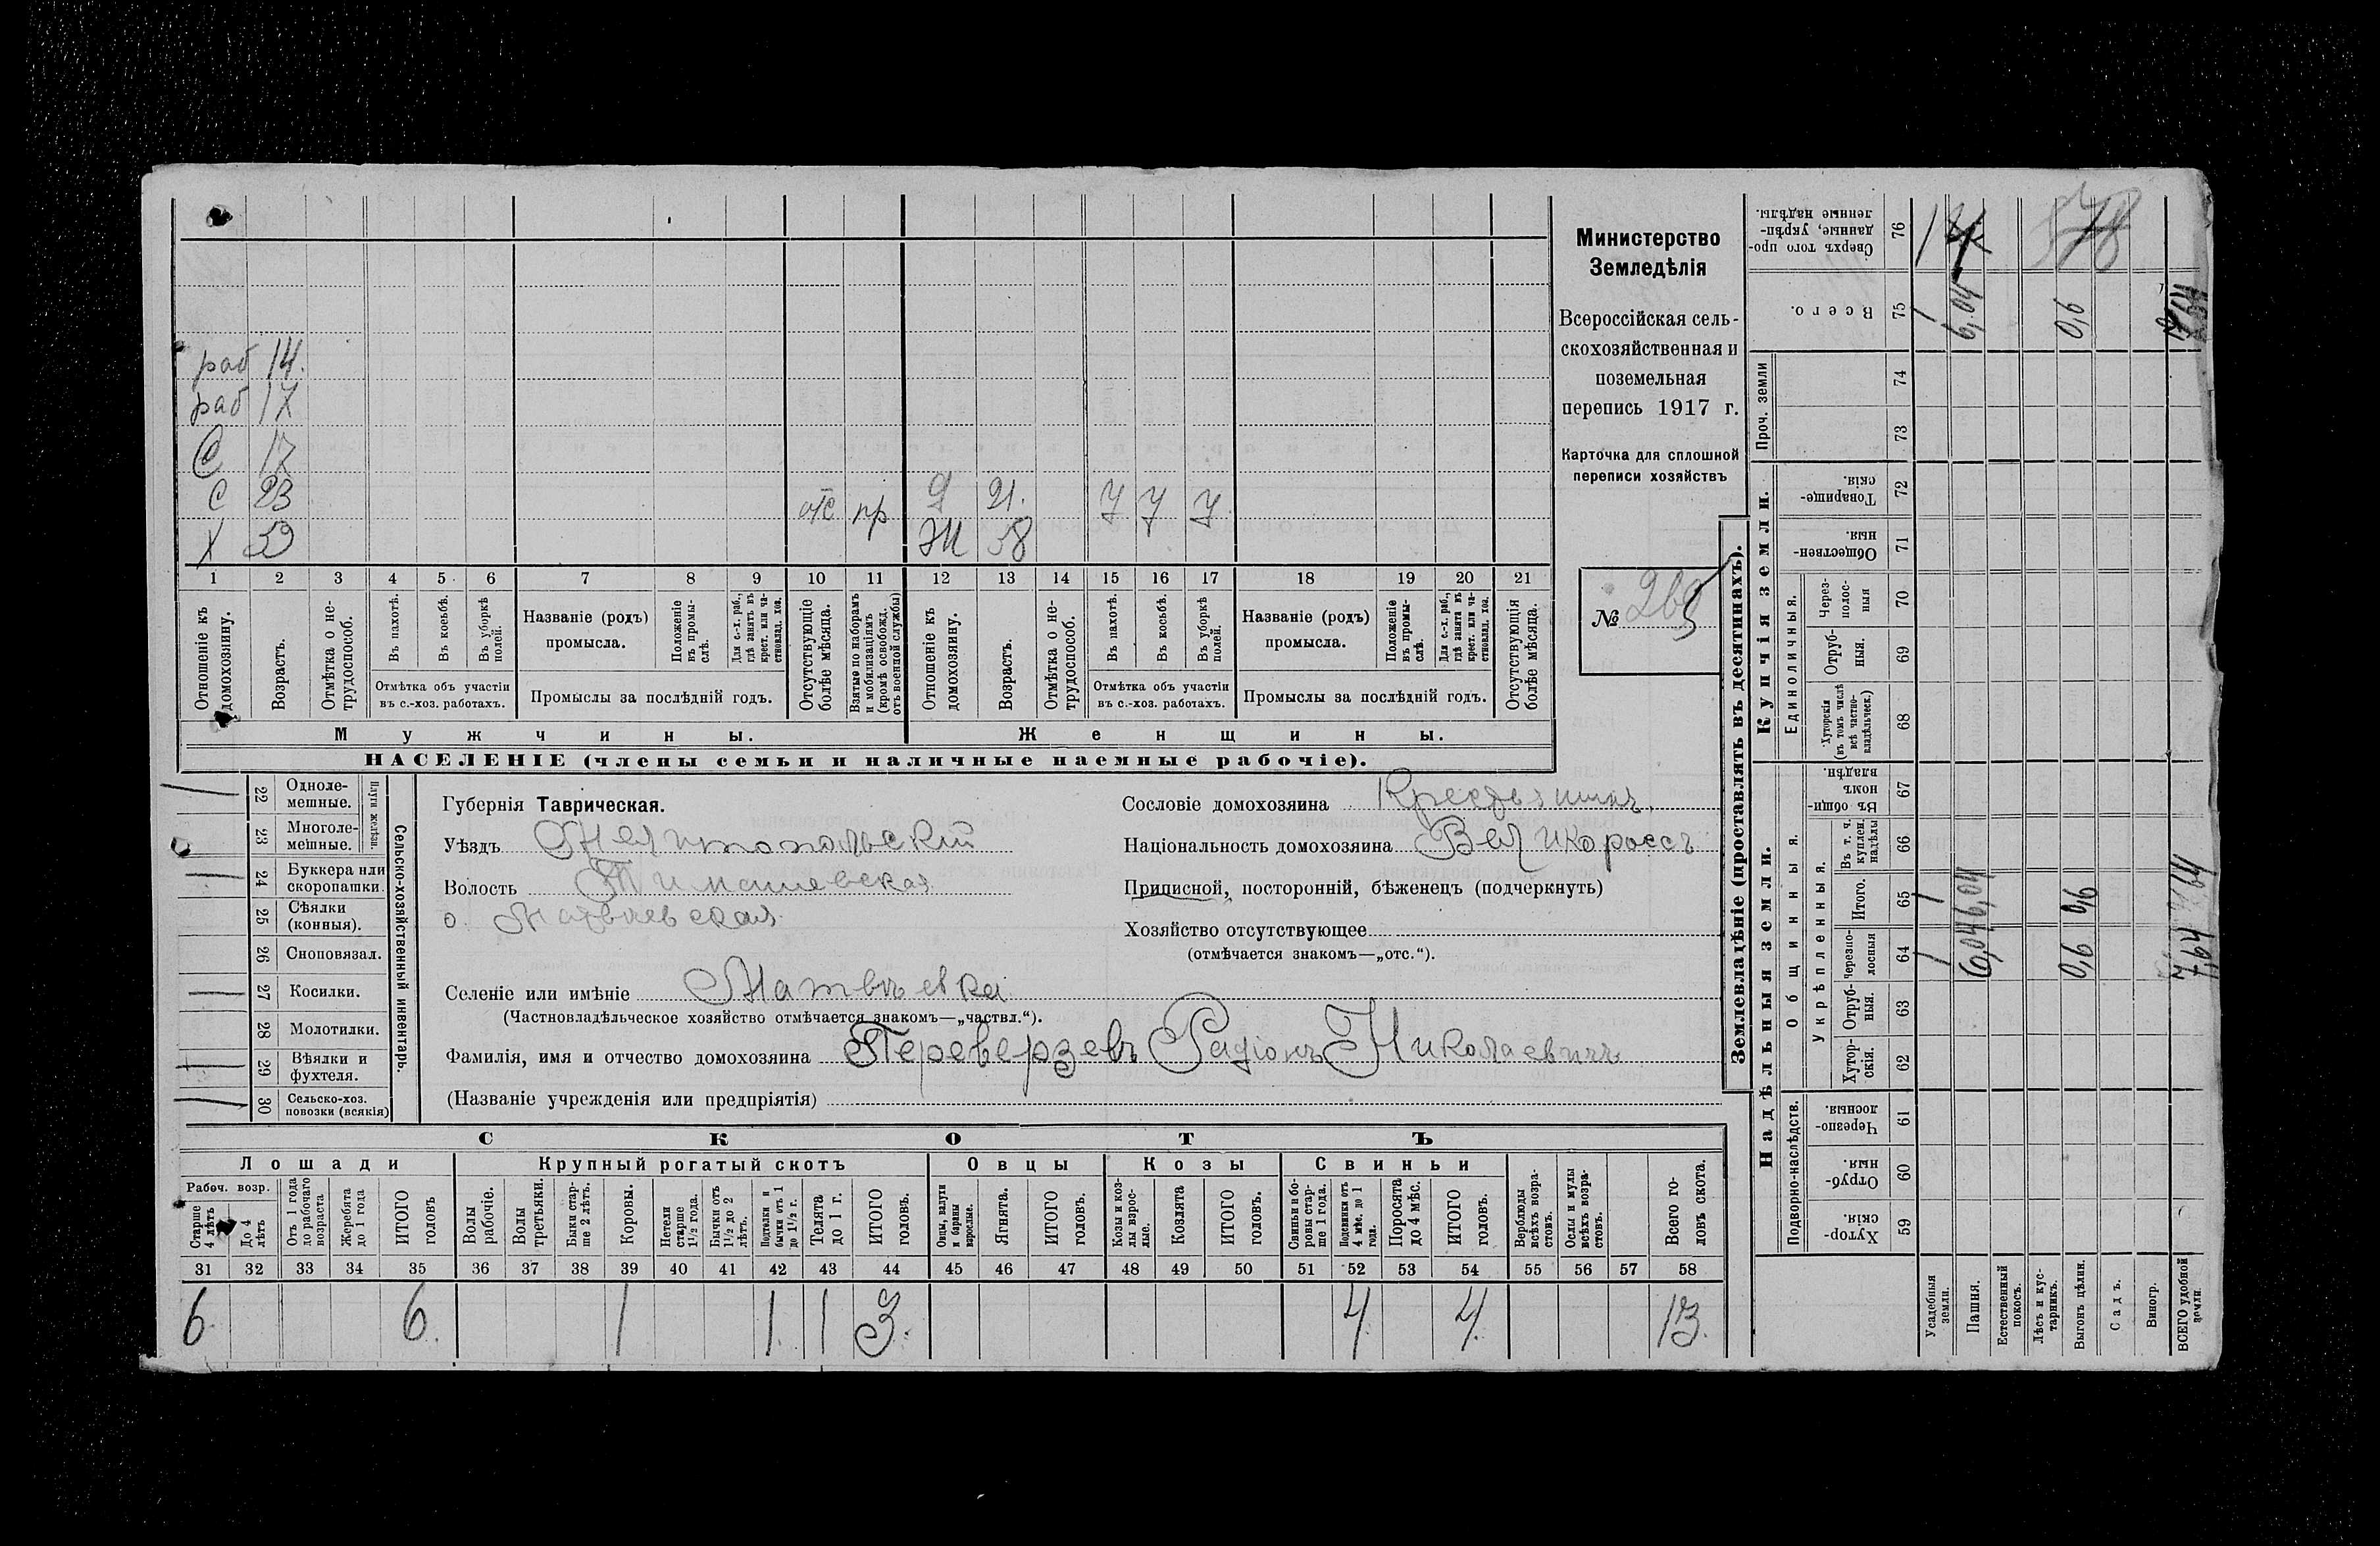 раб 14.
раб 17
С 17
С 23 отс пр Д 21. У У У
Х 59 Ж 58
1 2 3 4 5 6 7 8 9 10 11 12 13 14 15 16 17 18 19 20 21
Отношеніе къ домохозяину.
Возрастъ.
Отмѣтка о не-трудоспособ.
Въ пахотѣ.
Въ косьбѣ.
Въ уборкѣ полей.
Отмѣтка объ участіи
въ с.-хоз. работахъ.
Названіе (родъ)
промысла.
Положеніе въ промы-слѣ.
Для с.-х. раб., гдѣ занятъ въ крест. или ча-стновлад. хоз.
Промыслы за послѣдній годъ.
Отсутствующіе болѣе мѣсяца.
Взятые по наборамъ и мобилизаціямъ (кромѣ освобожд. отъ военной службы)
Отношеніе къ домохозяину.
Возрастъ.
Отмѣтка о не-трудоспособ.
Въ пахотѣ.
Въ косьбѣ.
Въ уборкѣ полей.
Отмѣтка объ участіи
въ с.-хоз. работахъ.
Названіе (родъ)
промысла.
Положеніе въ промы-слѣ.
Для с.-х. раб., гдѣ занятъ въ крест. или ча-стновлад. хоз.
Промыслы за послѣдній годъ.
Отсутствующія болѣе мѣсяца.
Мужчины. Женщины.
НАСЕЛЕНІЕ (члены семьи и наличные наемные рабочіе).
Министерство
Земледѣлія
Всероссійская сель-
скохозяйственная и
поземельная
перепись 1917 г.
Карточка для сплошной
переписи хозяйствъ
№
22 Одноле-мешные.
23 Многоле-мешные.
Плуги желѣзн.
24 Буккера или скоропашки.
25 Сѣялки (конныя).
26 Сноповязал.
27 Косилки.
28 Молотилки.
29 Вѣялки и фухтеля.
30 Сельско-хоз. повозки (всякія)
Сельско-хозяйственный инвентарь.
Губернія Таврическая.
Уѣздъ Мелитопольскій
Волость Тимашевская
о. Матвѣевская
Селеніе или имѣніе Матвѣевка
(Частновладѣльческое хозяйство отмѣчается знакомъ—„частвл.“).
Фамилія, имя и отчество домохозяина Переверзевъ Радіонъ Николаевичъ
(Названіе учрежденія или предпріятія)
Сословіе домохозяина Крестьянинъ.
Національность домохозяина Великороссъ
Приписной, посторонній, бѣженецъ (подчеркнуть)
Хозяйство отсутствующее
(отмѣчается знакомъ—„отс.“).
СКОТЪ
Лошади Крупный рогатый скотъ Овцы Козы Свиньи
Рабоч. возр.
Старше 4 лѣтъ
До 4 лѣтъ
Отъ 1 года до рабочаго возраста
Жеребята до 1 года
ИТОГО головъ
Волы рабочіе.
Волы третьяки.
Быки стар-ше 2 лѣтъ.
Коровы.
Нетели старше 1½ года.
Бычки отъ 1½ до 2 лѣтъ.
Подтелки и бычки отъ 1 до 1½ г.
Телята до 1 г.
ИТОГО головъ.
Овцы, валухи и бараны взрослые.
Ягнята.
ИТОГО головъ.
Козы и коз-лы взрос-лые.
Козлята
ИТОГО головъ.
Свиньи и бо-ровы стар-ше 1 года.
Подсвинки отъ 4 мѣс. до 1 года.
Поросята до 4 мѣс.
ИТОГО головъ.
Верблюды всѣхъ возра-стовъ.
Ослы и мулы всѣхъ возра-стовъ.
Всего го-ловъ скота.
31 32 33 34 35 36 37 38 39 40 41 42 43 44 45 46 47 48 49 50 51 52 53 54 55 56 57 58
6 6. 1 1 1 3. 4 4. 13.
Землевладѣніе (проставлять въ десятинахъ).
Надѣльныя земли. Купчія земли. Проч. земли
Подворно-наслѣдств. Общинныя. Единоличныя.
Укрѣпленныя.
Хутор-скія. 59
Отруб-ныя. 60
Черезпо-лосныя. 61
Хутор-скія. 62
Отруб-ныя. 63
Черезпо-лосныя 64
Итого. 65
Въ т. ч. куплен. надѣлы 66
Въ общин-номъ владѣн. 67
Хуторскія (въ томъ числѣ всѣ частно-владѣльческ.) 68
Отруб-ныя. 69
Через-полос-ныя 70
Обществен-ныя. 71
Товарище-скія. 72
73
74
Всего. 75
Сверхъ того про-данные, укрѣп-ленные надѣлы. 76
Усадебныя земли. 1 1 1
Пашня. 6,04 6,04 6,04
Естественный покосъ.
Лѣсъ и кус-тарникъ.
Выгонъ цѣлин. 0,6 0,6 0,6
Садъ.
Виногр.
ВСЕГО удобной земли. 7,64